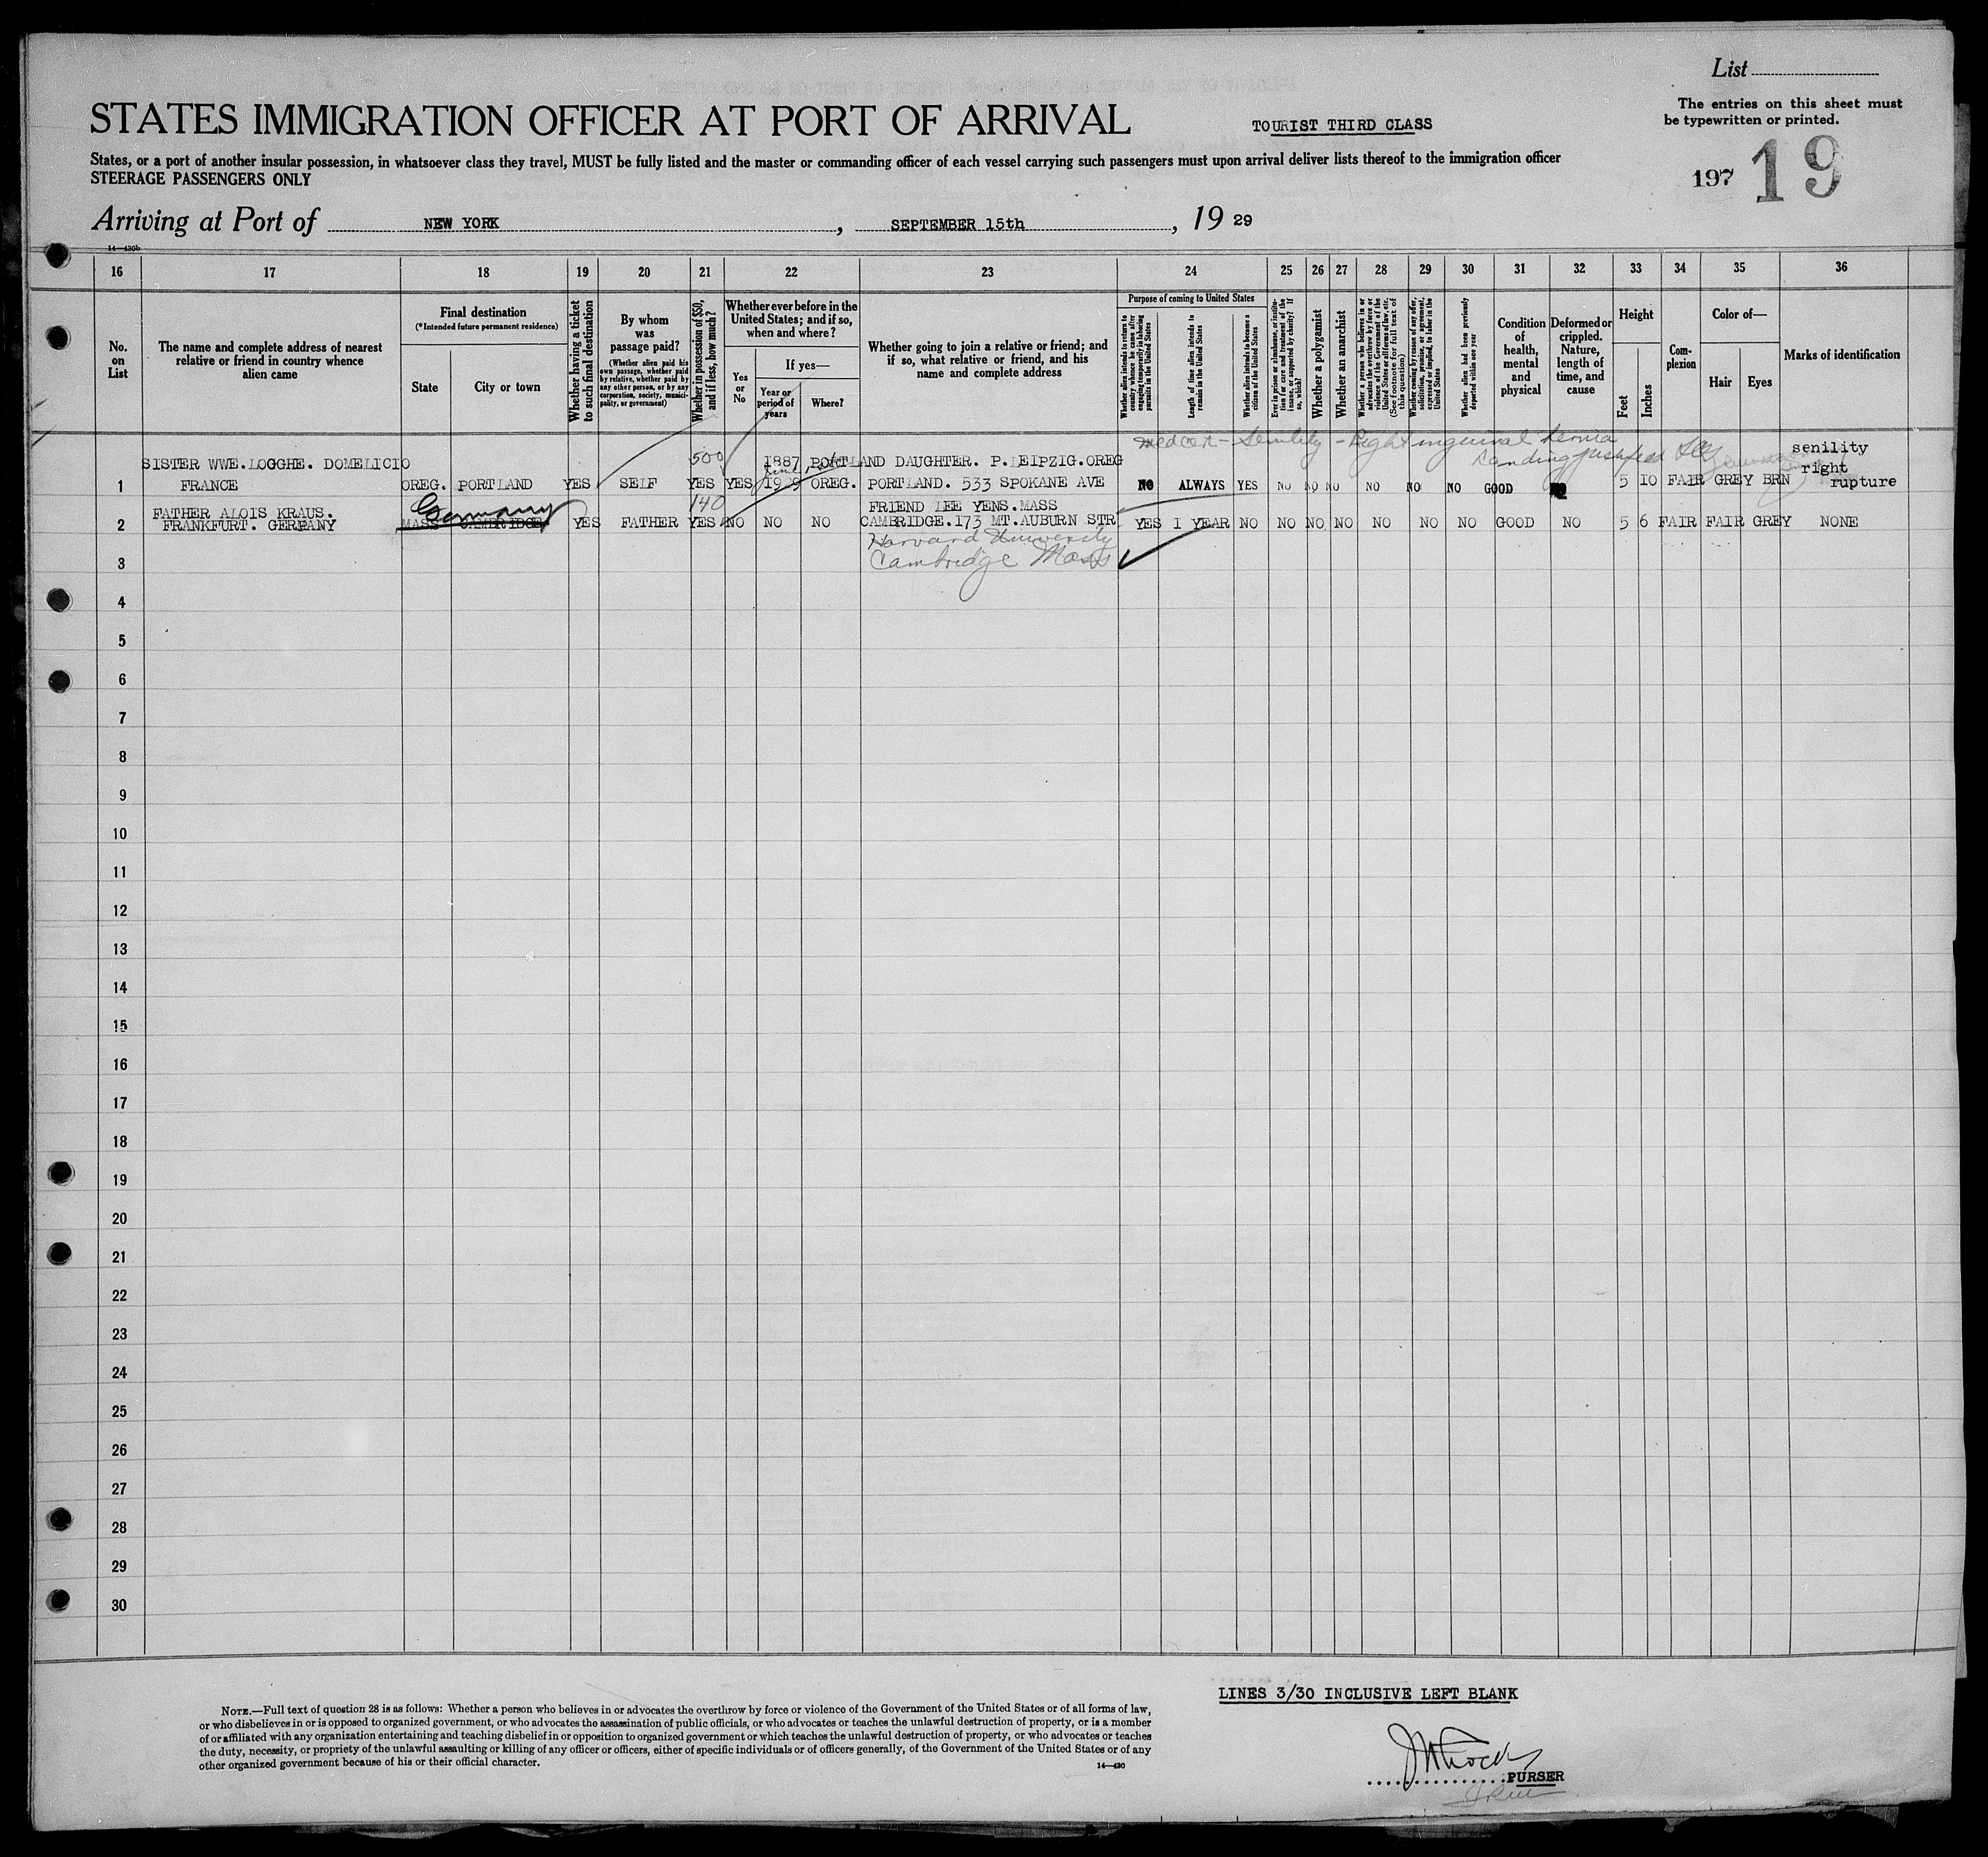 List
The entries on this sheet must
be typewritten or printed.
STATES IMMIGRATION OFFICER AT PORT OF ARRIVAL
TOURIST THIRD CLASS
States, or a port of another insular possession, in whatsoever class they travel, MUST be fully listed and the master or commanding officer of each vessel carrying such passengers must upon arrival deliver lists thereof to the immigration officer
STEERAGE PASSENGERS ONLY
197 19
Arriving at Port of NEW YORK, SEPTEMBER 15th, 19 29
14—430b
16 17 18 19 20 21 22 23 24 25 26 27 28 29 30 31 32 33 34 35 36
No.
on
List
The name and complete address of nearest
relative or friend in country whence
alien came
Final destination
(*Intended future permanent residence)
State
City or town
Whether having a ticket
to such final destination
By whom
was
passage paid?
(Whether alien paid his
own passage, whether paid
by relative, whether paid by
any other person, or by any
corporation, society, munici-
pality, or government)
Whether in possession of $50,
and if less, how much?
Whether ever before in the
United States; and if so,
when and where?
Yes
or
No
If yes—
Year or
period of
years
Where?
Whether going to join a relative or friend; and
if so, what relative or friend, and his
name and complete address
Purpose of coming to United States
Whether alien intends to return to
country whence he came after
engaging temporarily in laboring
pursuits in the United States
Length of time alien intends to
remain in the United States
Whether alien intends to become a
citizen of the United States
Ever in prison or almshouse, or institu-
tion for care and treatment of the
insane, or supported by charity? If
so, which?
Whether a polygamist
Whether an anarchist
Whether a person who believes in or
advocates the overthrow by force or
violence of the Government of the
United States or all forms of law, etc.
(See footnote for full text of
this question)
Whether coming by reason of any offer,
solicitation, promise, or agreement,
expressed or implied, to labor in the
United States
Whether alien had been previously
deported within one year
Condition
of
health,
mental
and
physical
Deformed or
crippled.
Nature,
length of
time, and
cause
Height
Feet
Inches
Com-
plexion
Color of—
Hair
Eyes
Marks of identification
Med cer - Senility - Right inguinal hernia
senility
SISTER WWE.LOGGHE. DOMELICIO 500 1887 PORTLAND DAUGHTER. P.LEIPZIG.OREG
right
1 FRANCE OREG. PORTLAND YES SELF YES YES 1929 OREG. PORTLAND. 533 SPOKANE AVE NO ALWAYS YES NO NO NO NO NO NO GOOD NO 5 10 FAIR GREY BRN rupture
FATHER ALOIS KRAUS. Germany 140 FRIEND LEE YENS.MASS
2 FRANKFURT. GERMANY MASS CAMBRIDGE YES FATHER YES NO NO NO CAMBRIDGE.173 MT.AUBURN STR YES 1 YEAR NO NO NO NO NO NO NO GOOD NO 5 6 FAIR FAIR GREY NONE
Harvard University
3 Cambridge Mass
4
5
6
7
8
9
10
11
12
13
14
15
16
17
18
19
20
21
22
23
24
25
26
27
28
29
30
LINES 3/30 INCLUSIVE LEFT BLANK
NOTE.—Full text of question 28 is as follows: Whether a person who believes in or advocates the overthrow by force or violence of the Government of the United States or of all forms of law,
or who disbelieves in or is opposed to organized government, or who advocates the assassination of public officials, or who advocates or teaches the unlawful destruction of property, or is a member
of or affiliated with any organization entertaining and teaching disbelief in or opposition to organized government or which teaches the unlawful destruction of property, or who advocates or teaches
the duty, necessity, or propriety of the unlawful assaulting or killing of any officer or officers, either of specific individuals or of officers generally, of the Government of the United States or of any
other organized government because of his or their official character.
14—430
PURSER